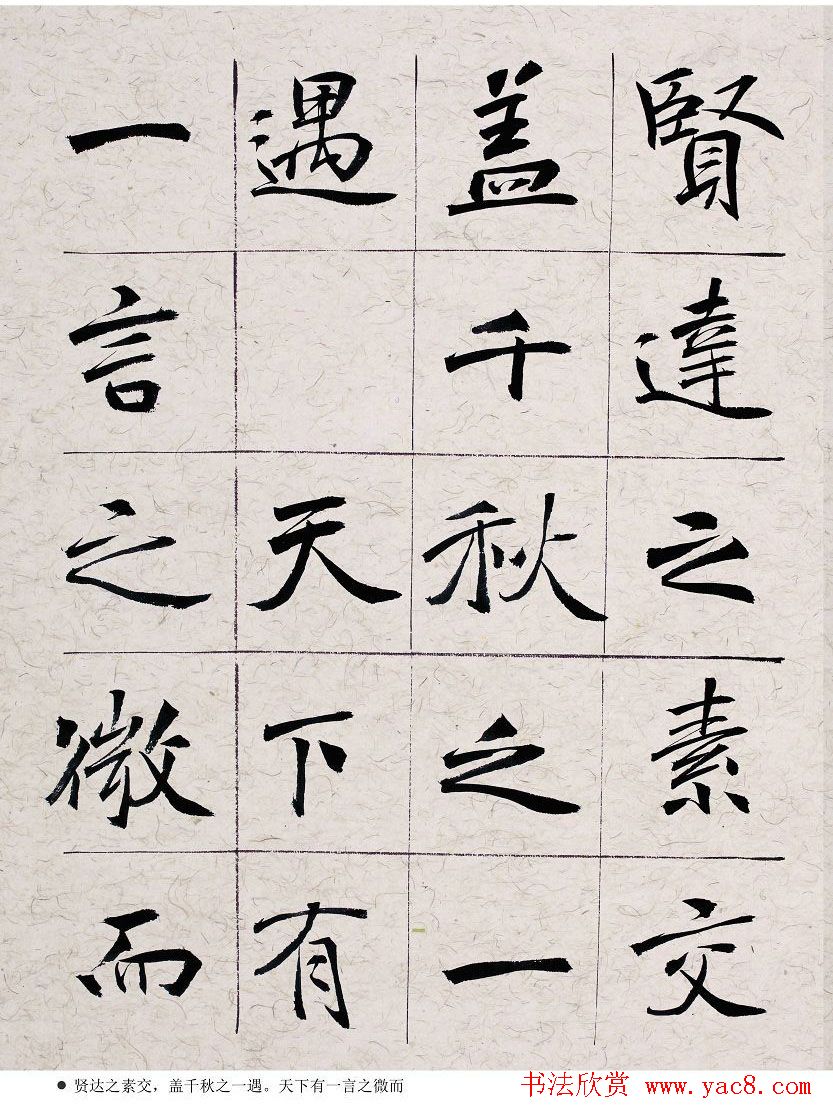 賢達之素交
盖千秋之一
遇 天下有
一言之微而
● 贤达之素交，盖千秋之一遇。天下有一言之微而
书法欣赏 www.yac8.com